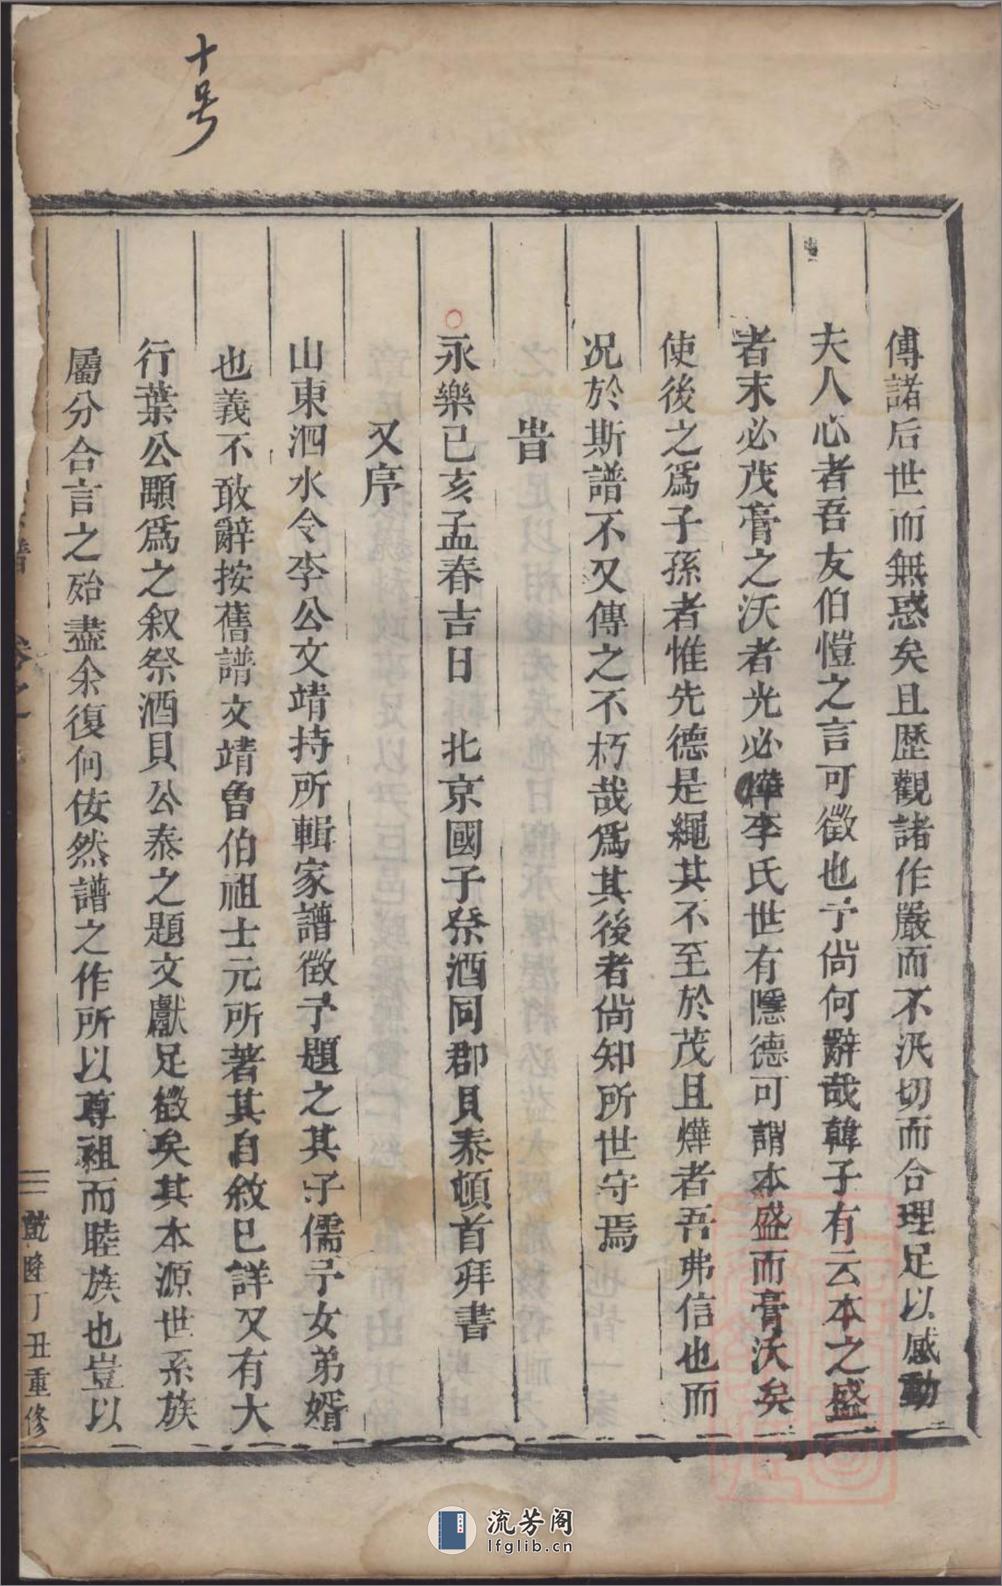 十号
傅諸后世而無惑矣且歷觀諸作嚴而不汎切而合理足以感動
夫人心者吾友伯愷之言可徵也予尚何辭哉韓子有云本之盛
者末必茂膏之沃者光必燁李氏世有隱德可謂本盛而膏沃矣
使後之爲子孫者惟先德是繩其不至於茂且燁者吾弗信也而
况於斯譜不又傳之不朽哉爲其後者尚知所世守焉
旹
永樂己亥孟春吉日 北京國子祭酒同郡貝泰頓首拜書
又序
山東泗水令李公文靖持所輯家譜徵予題之其子儒予女弟婿
也義不敢辭按舊譜文靖曾伯祖士元所著其自敘已詳又有大
行葉公顒爲之叙祭酒貝公泰之題文獻足徵矣其本源世系族
屬分合言之殆盡余復何侫然譜之作所以尊祖而睦族也豈以
譜 卷之
丁丑重修
流芳阁
lfglib.cn